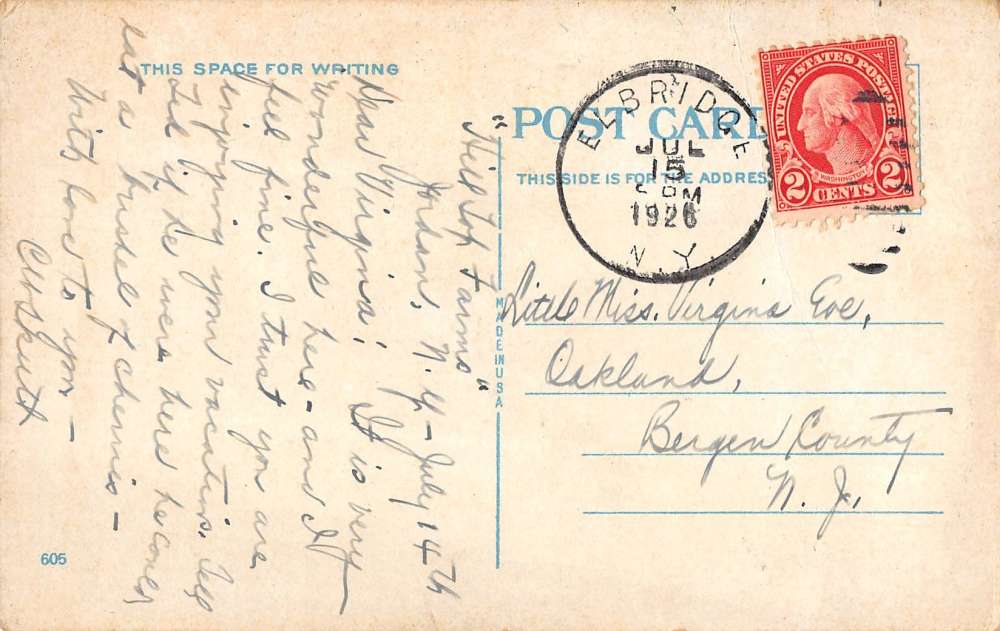 THIS SPACE FOR WRITING
"Hill top Farms"
Jordan, N.Y. - July 14th
Dear Virginia: It is very
wonderful here - and I
feel fine. I trust you are
enjoying your vacation. Tell
Ted if he were here he could
eat a bushel of cherries -
With love to you -
POST CARD
THIS SIDE IS FOR THE ADDRESS
MADE IN USA
ELBRIDGE
JUL
15
PM
1926
N.Y.
UNITED STATES POSTAGE
WASHINGTON
2 CENTS 2
Little Miss. Virginia Eve,
Oakland,
Bergen County
N. J.
605